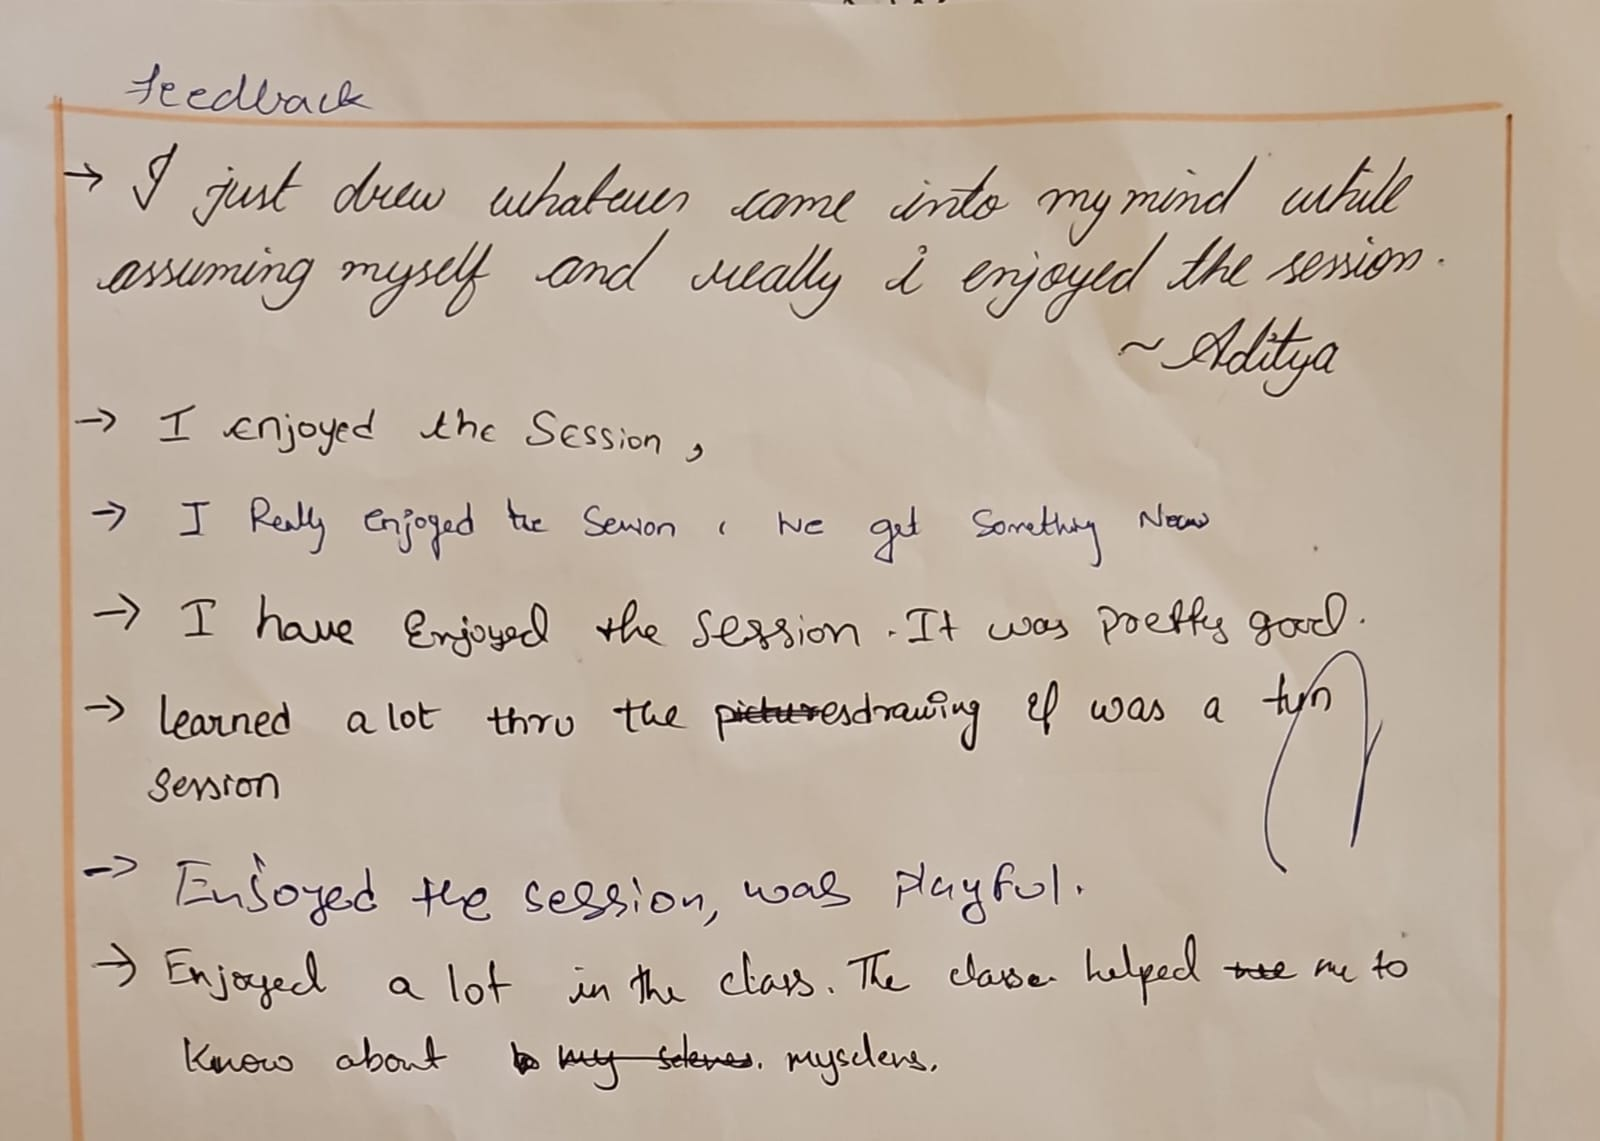 Feedback
→ I just drew whatever came into my mind while
assuming myself and really i enjoyed the session.
~ Aditya
→ I enjoyed the Session,
→ I Really enjoyed the Session, We get Something New
→ I have Enjoyed the Session. It was pretty good.
→ learned a lot thru the picturesdrawing it was a fun
session
→ Enjoyed the session, was playful.
→ Enjoyed a lot in the class. The classe helped me to
know about my myselens.